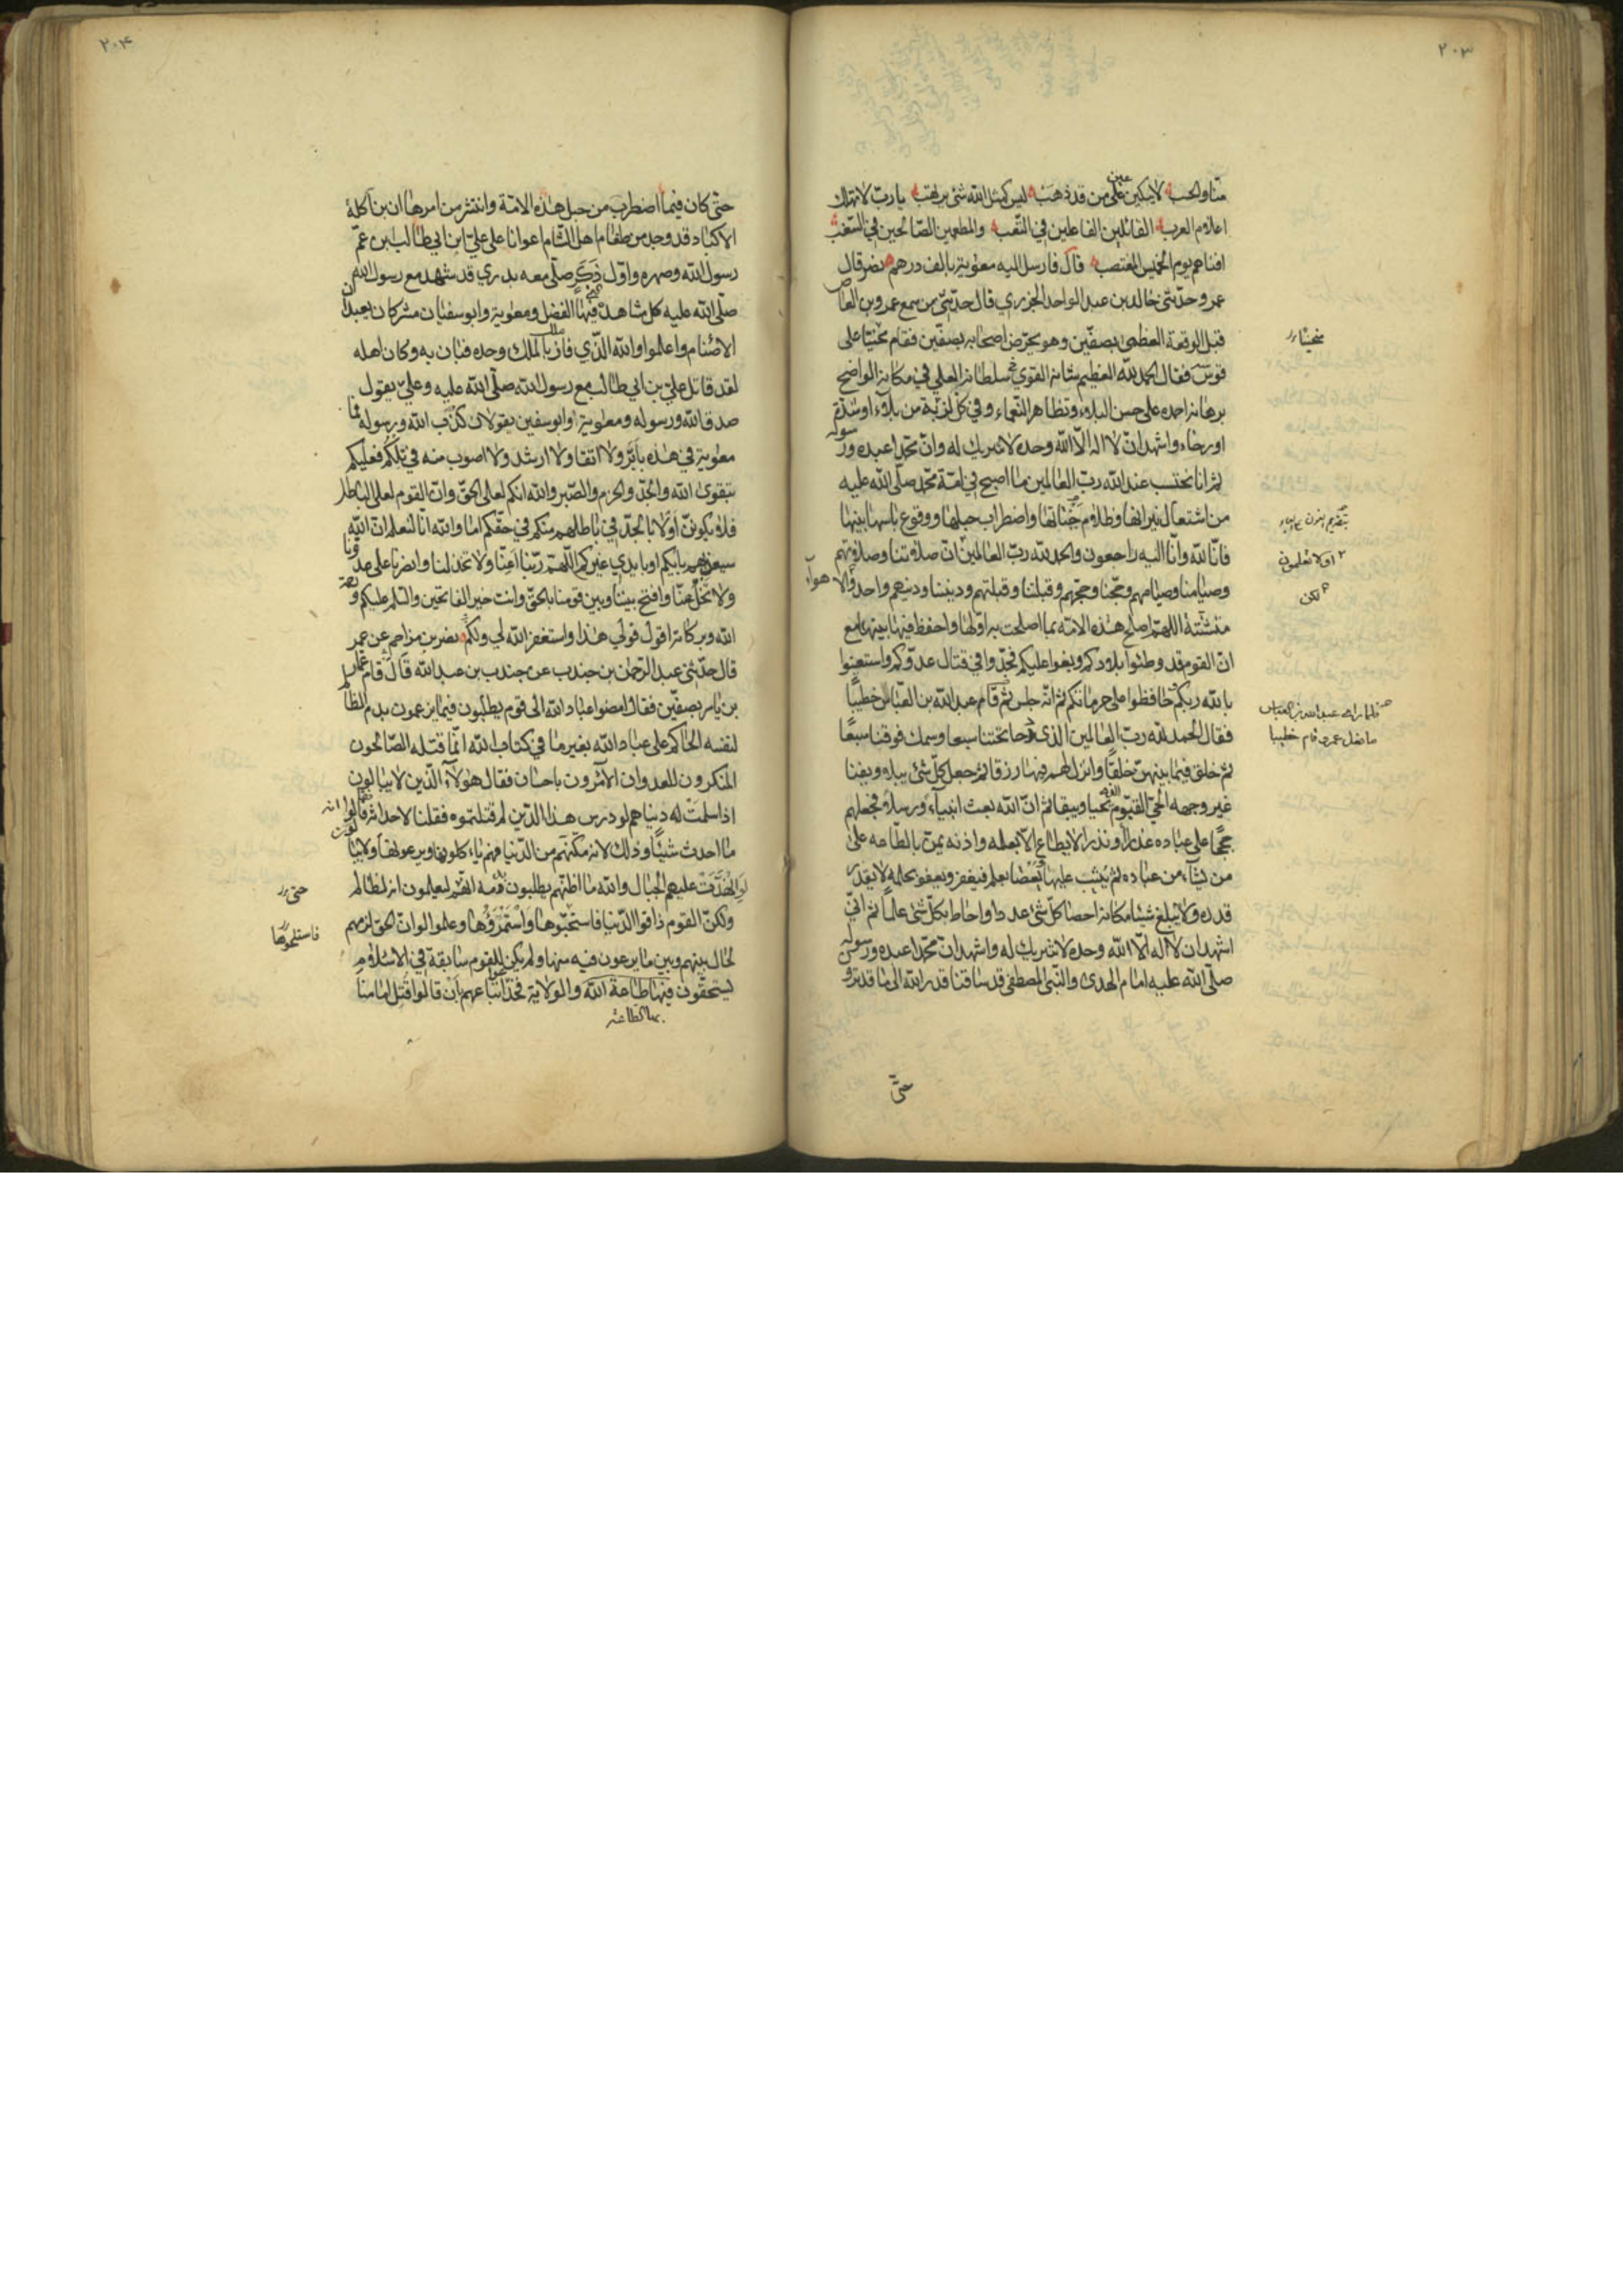 ٢٠٣
منا والحب لا يبكين عين على من قد ذهب ليس كمثل الله شئ يرتهب يا رب لا تهلك
اعلام العرب القائلين الفاعلين في التعب والمطعمين الصالحين في السغب
افناهم يوم الخميس المغتصب قال فارسل اليه معوية بالف درهم نصر قال
عمر وحدثني خالد بن عبد الواحد الجزري قال حدثني من سمع عمرو بن العاص
قبل الوقعة العظمى بصفين وهو يحرض اصحابه بصفين فقام محنيا على
قوس فقال الحمد لله العظيم شانه القوي في سلطانه العلي في مكانه الواضح
برهانه احمده على حسن البلاء وتظاهر النعماء وفي كل لزبة من بلاء او شدة
او رخاء واشهد ان لا اله الا الله وحده لا شريك له وان محمدا عبده ورسوله
ثم انا نحتسب عند الله رب العالمين ما اصبح في امة محمد صلى الله عليه
من اشتعال نيرانها وظلام جنباتها واضطراب حبلها ووقوع باسها بينها
فانا لله وانا اليه راجعون والحمد لله رب العالمين ان صلاوتنا وصلاوتهم
وصيامنا وصيامهم وحجنا وحجهم وقبلتنا وقبلتهم وديننا ودينهم واحد والاهواء
متشتتة اللهم اصلح هذه الامة بما اصلحت به اولها واحفظ فيها بينها مع
ان القوم قد وطئوا بلادكم وبغوا عليكم فجدوا في قتال عدوكم واستعينوا
بالله ربكم وحافظوا على حرماتكم ثم انه جلس ثم قام عبد الله بن العباس خطيبا
فقال الحمد لله رب العالمين الذي دحا تحتنا سبعا وسمك فوقنا سبعا
ثم خلق فيما بينهن خلقا وانزل لهم فيها رزقا ثم جعل كل شئ يبلا ويفنا
غير وجهه الحي القيوم الذي يحيا ويبقا ثم ان الله بعث انبياء ورسلا فجعلهم
حججا على عباده عذرا ونذرا لا يطاع الا بعلمه واذنه يمن بالطاعه على
من يشاء من عباده ثم يثيب عليها ويعصا بعلم فيغفر ويعفو بحلمه لا يقدر
قدره ولا يبلغ شئ مكانه احصا كل شئ عددا واحاط بكل شئ علما ثم اني
اشهد ان لا اله الا الله وحده لا شريك له واشهد ان محمدا عبده ورسوله
صلى الله عليه امام الهدى والنبي المصطفى قد ساقنا قدر الله الى ما قد ترو
حتى
او لا تعلمون
لكن
فلما راى عبد الله بن العباس
ما فعل عمرو قام خطيبا
٢٠٤
حتى كان فيما اضطرب من حبل هذه الامة وانتشر من امرها ان بن آكلة
الاكباد قد وجد من طغام اهل الشام اعوانا على علي ابن ابي طالب ابن عم
رسول الله وصهره واول ذكر صلى معه بدري قد شهد مع رسول الله
صلى الله عليه كل مشاهده التي فيها الفضل ومعوية وابو سفيان مشركان يعبدان
الاصنام واعلموا والله الذي فاز بالملك وحده فبان به وكان اهله
لقد قاتل علي بن ابي طالب مع رسول الله صلى الله عليه وعلي يقول
صدق الله ورسوله ومعوية وابو سفين يقولان كذب الله ورسوله فما
معوية في هذه بابر ولا اتقا ولا ارشد ولا اصوب منه في تلكم فعليكم
بتقوى الله والجد والحزم والصبر والله انكم لعلى الحق وان القوم لعلى الباطل
فلا يكونن اولا بالجد في باطلهم منكم في حقكم اما والله انا لنعلم ان الله
سيعذبهم بايديكم او بايدي غيركم اللهم ربنا اعنا ولا تخذلنا وانصرنا على عدونا
ولا تخل عنا وافتح بيننا وبين قومنا بالحق وانت خير الفاتحين والسلم عليكم ورحمة
الله وبركاته اقول قولي هذا واستغفر الله لي ولكم نصر بن مزاحم عن عمر
قال حدثني عبد الرحمن بن جندب عن جندب بن عبد الله قال قام عمار
بن ياسر بصفين فقال امضوا عباد الله الى قوم يطلبون فيما يزعمون بدم الظالم
لنفسه الحاكم على عباد الله بغير ما في كتاب الله انما قتله الصالحون
المنكرون للعدوان الآمرون باحسان فقال هؤلاء الذين لا يبالون
اذا سلمت له دنياهم لو درس هذا الدين لم قتلتموه فقلنا لاحداثه فقالوا انه
ما احدث شيئا وذلك لانه مكنهم من الدنيا فهم ياكلونها ويرعونها ولا يبالون
لو انهدت عليهم الجبال والله ما اظنهم يطلبون دمه انهم ليعلمون انه لظالم
ولكن القوم ذاقوا الدنيا فاستحبوها واستمروها وعلموا لو ان الحق لزمهم
لحال بينهم وبين ما يرعون فيه منها ولم يكن للقوم سابقة في الاسلام
يستحقون فيها طاعة الله والولاية فخدعوا اتباعهم ان قالوا قتل امامنا
بها الطاعة
حتى
فاستحلوها